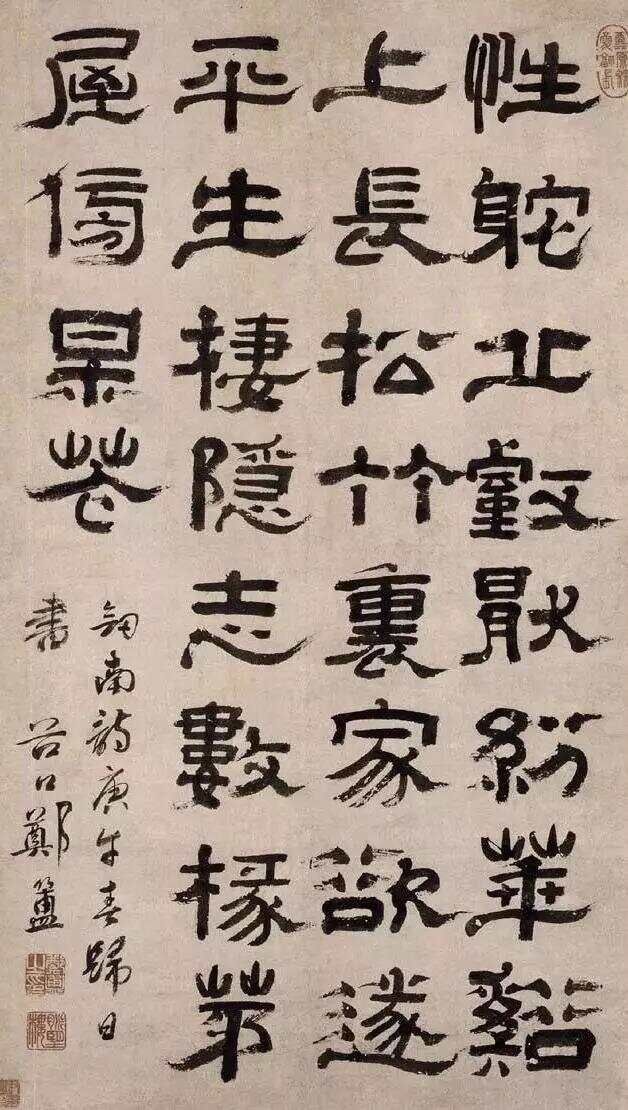 性躭丘壑猒紛華谿
上長松竹裏家欲遂
平生棲隱志數椽茅
屋傍某花
劍南詩庚午春歸日
書 谷口鄭簠